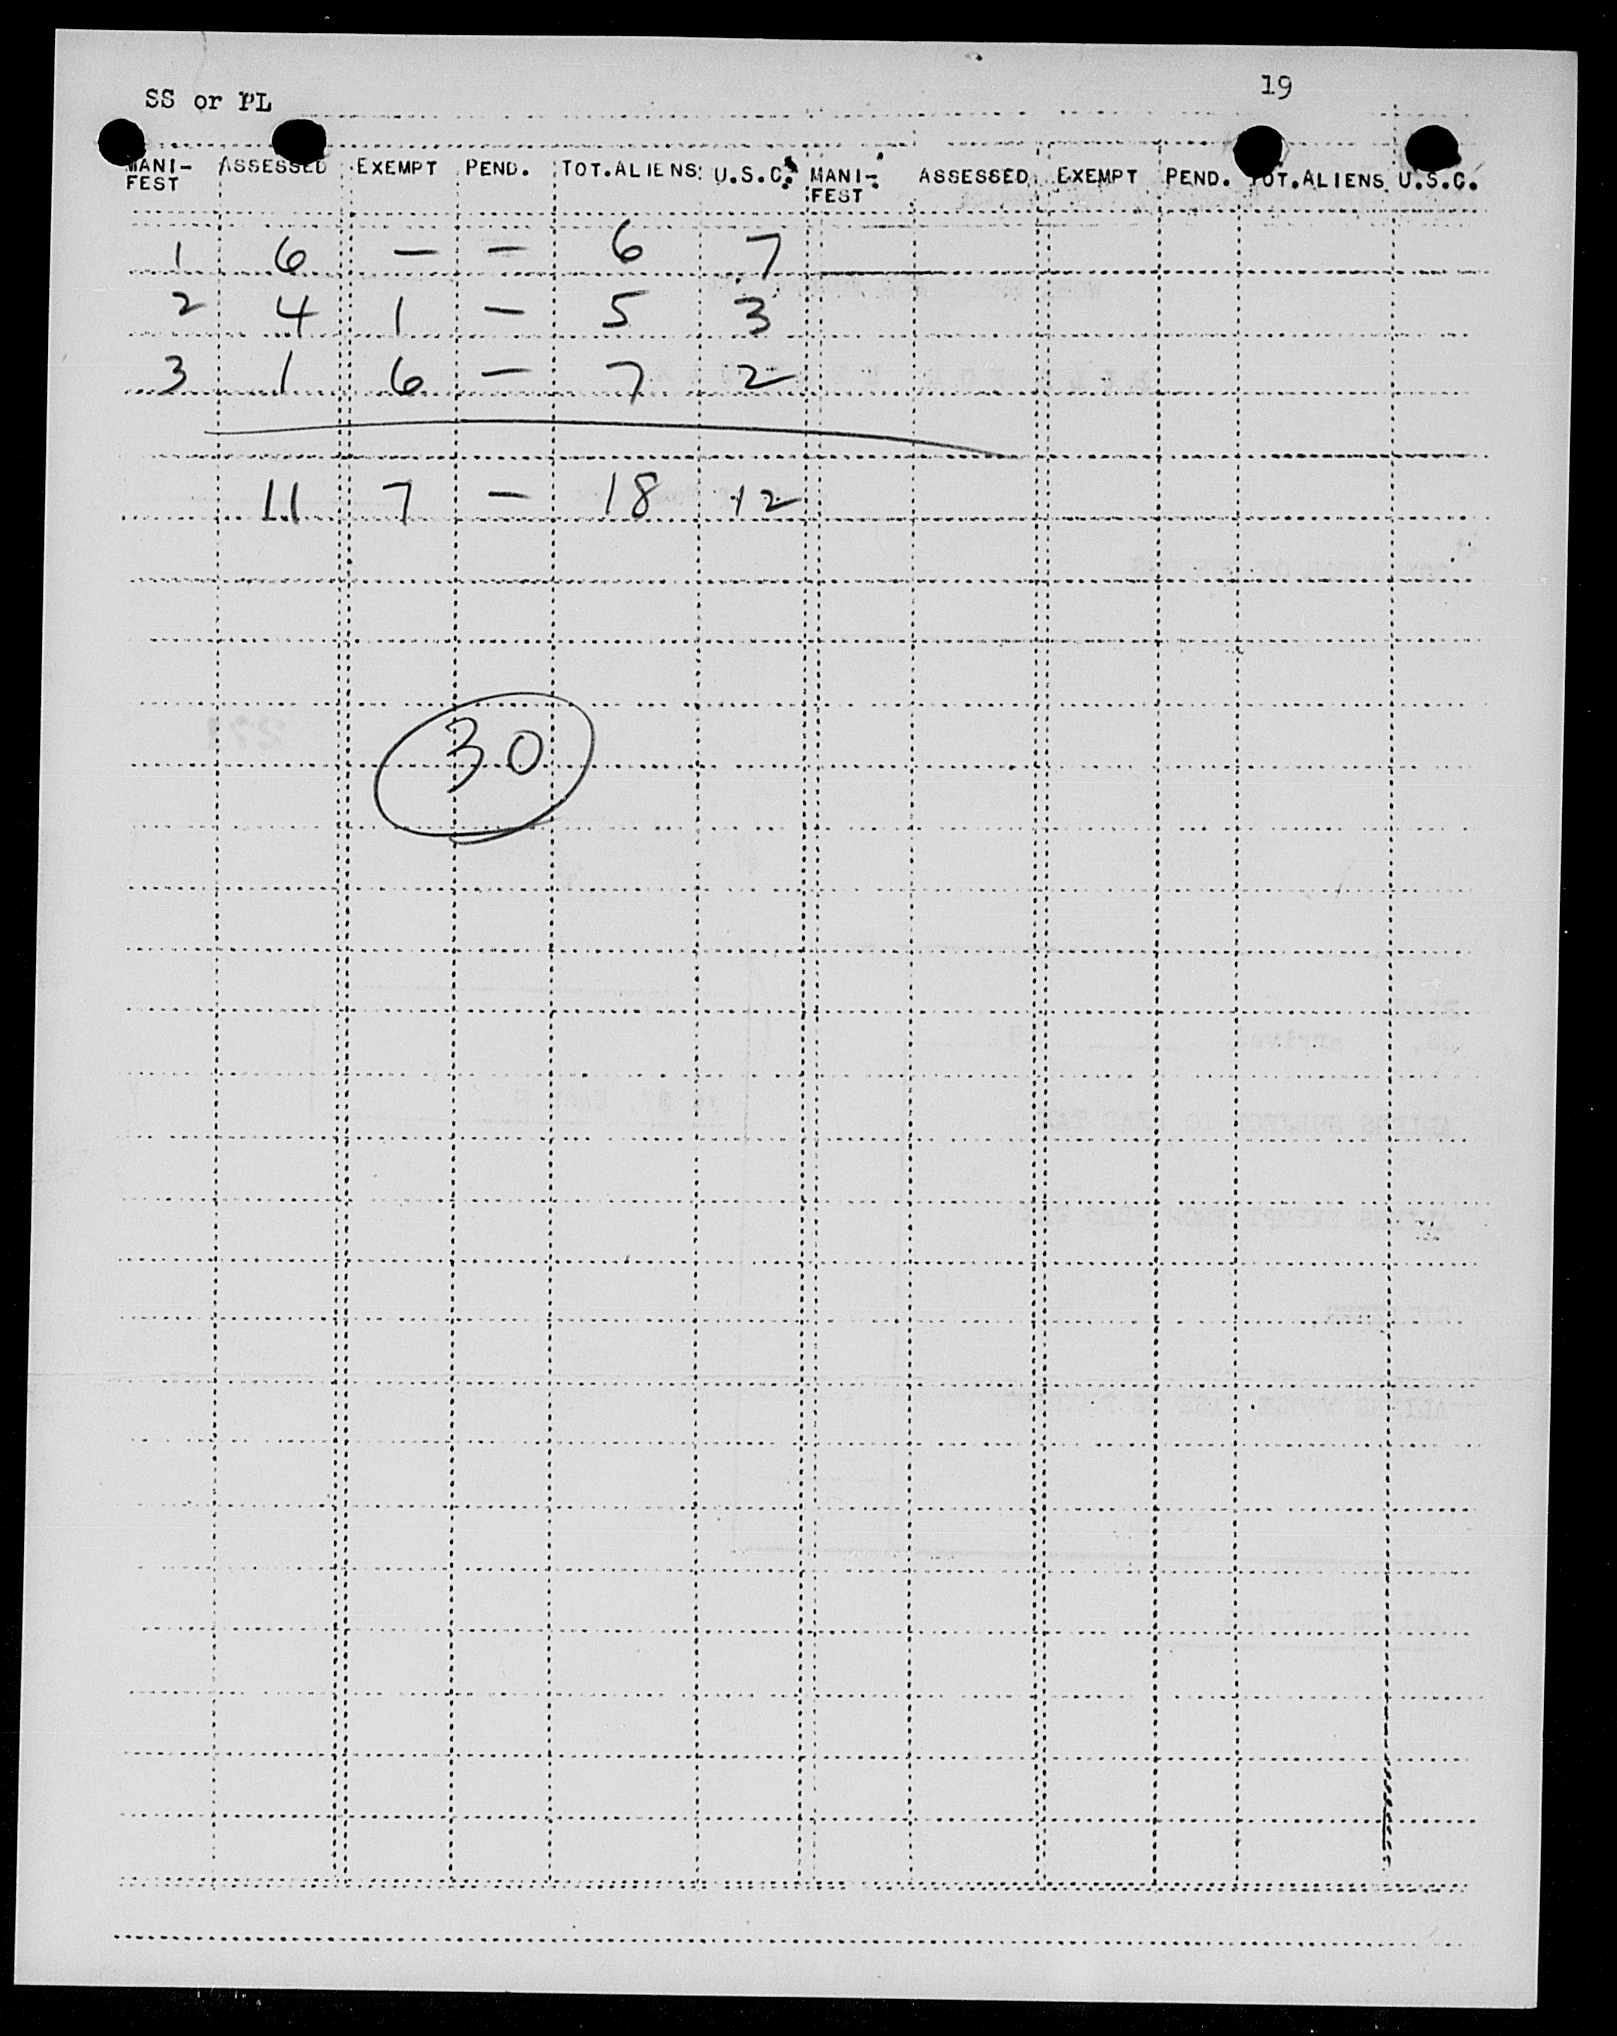 SS or PL 19
MANI-FEST ASSESSED EXEMPT PEND. TOT.ALIENS U.S.C. MANI-FEST ASSESSED EXEMPT PEND. TOT.ALIENS U.S.C.
1 6 — — 6 7
2 4 1 — 5 3
3 1 6 — 7 2
11 7 — 18 12
30